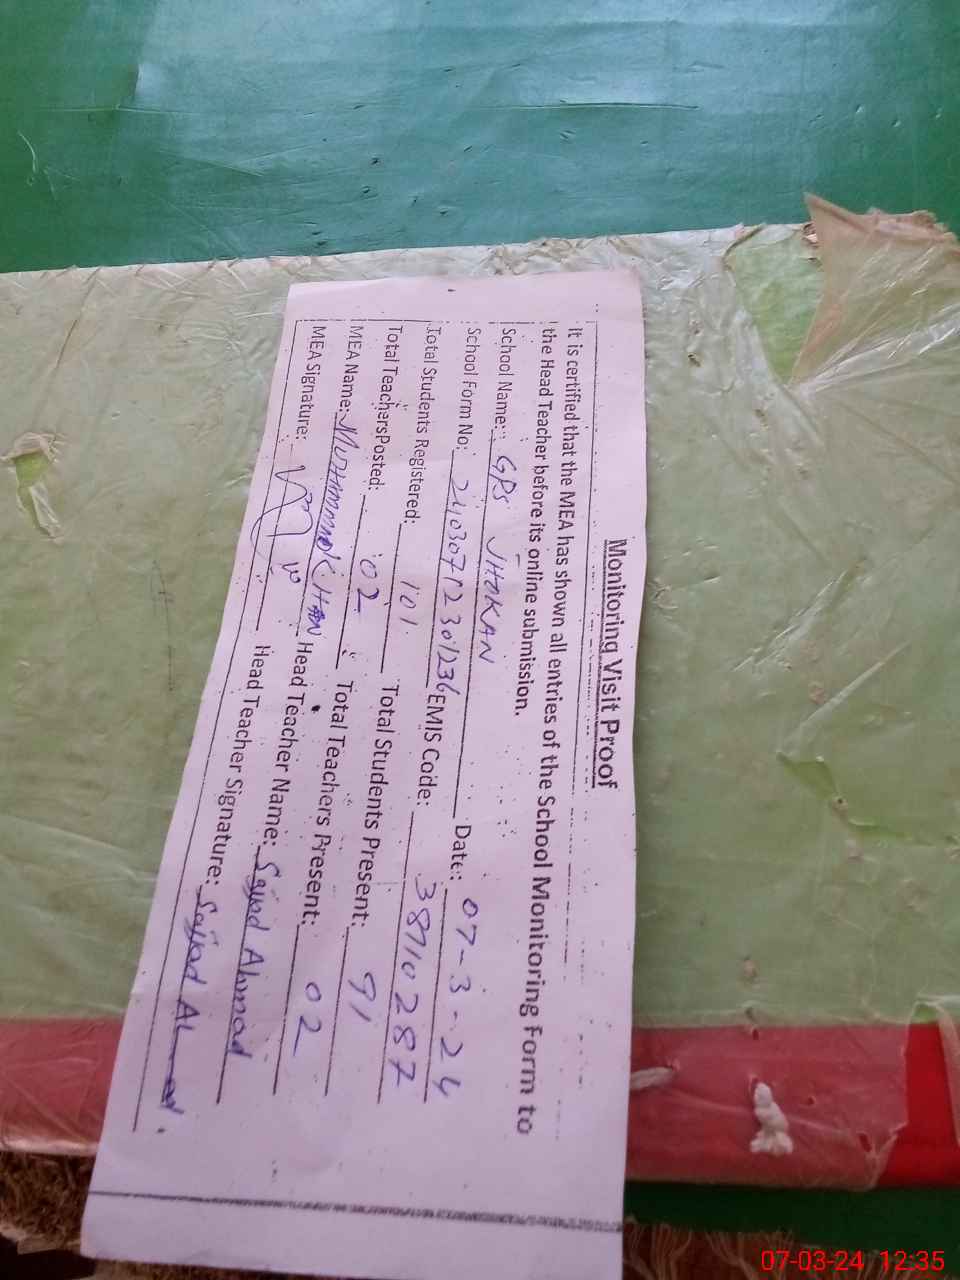 Monitoring Visit Proof
It is certified that the MEA has shown all entries of the School Monitoring Form to
the Head Teacher before its online submission.
School Name: GPS JHOKAN Date: 07-3-24
School Form No: 24030712301236 EMIS Code: 38710287
Total Students Registered: 101 Total Students Present: 91
Total TeachersPosted: 02 Total Teachers Present: 02
MEA Name: MUHAMMAD KHAN Head Teacher Name: Sajjad Ahmad
MEA Signature: Head Teacher Signature: Sajjad
07-03-24 12:35